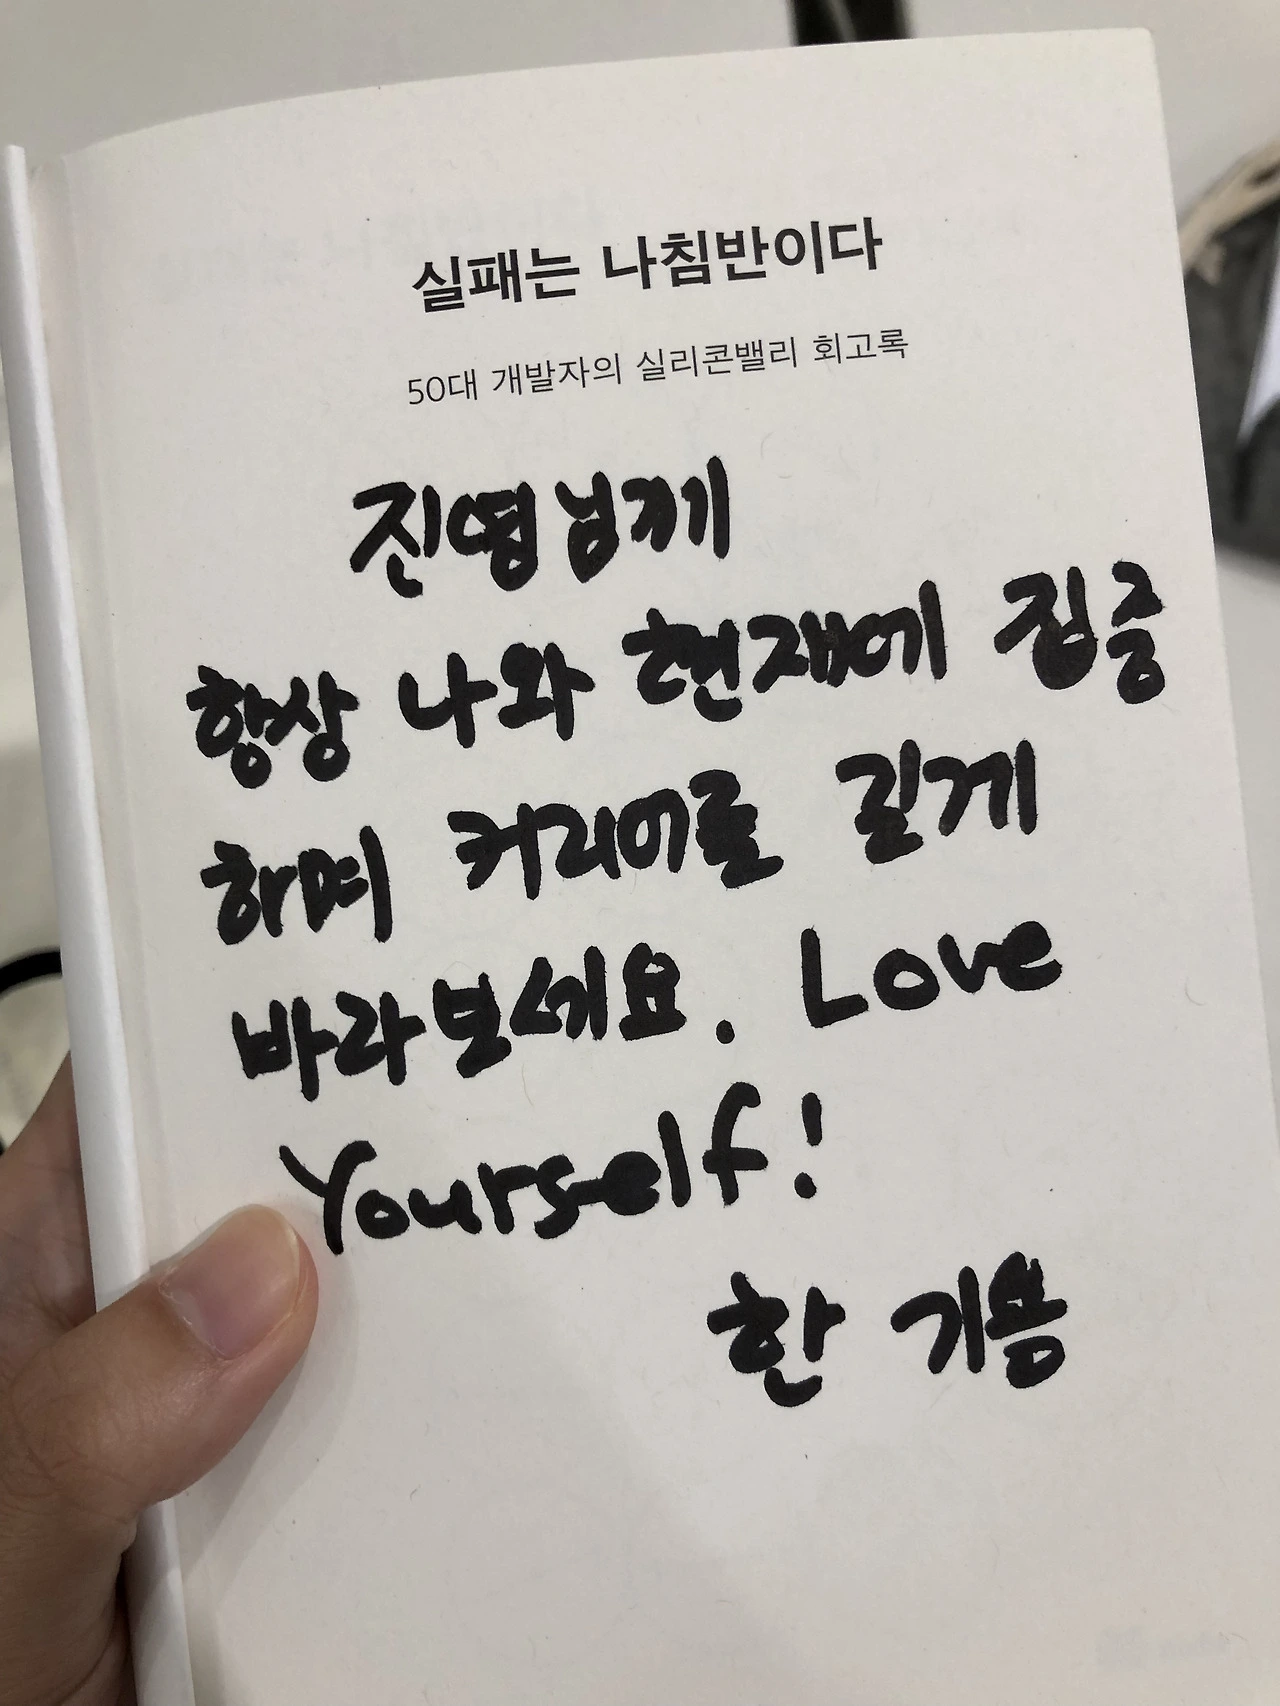 실패는 나침반이다
50대 개발자의 실리콘밸리 회고록
진영님께
항상 나와 현재에 집중
하며 커리어를 길게
바라보세요. Love
Yourself!
한 기용